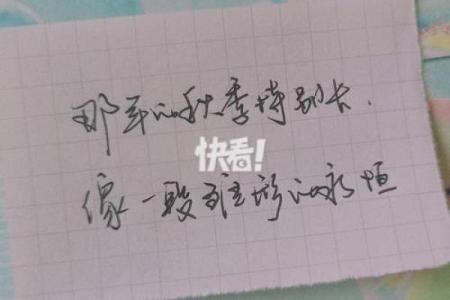 那年的秋季特别长，
快看!
像一段雏形的永恒